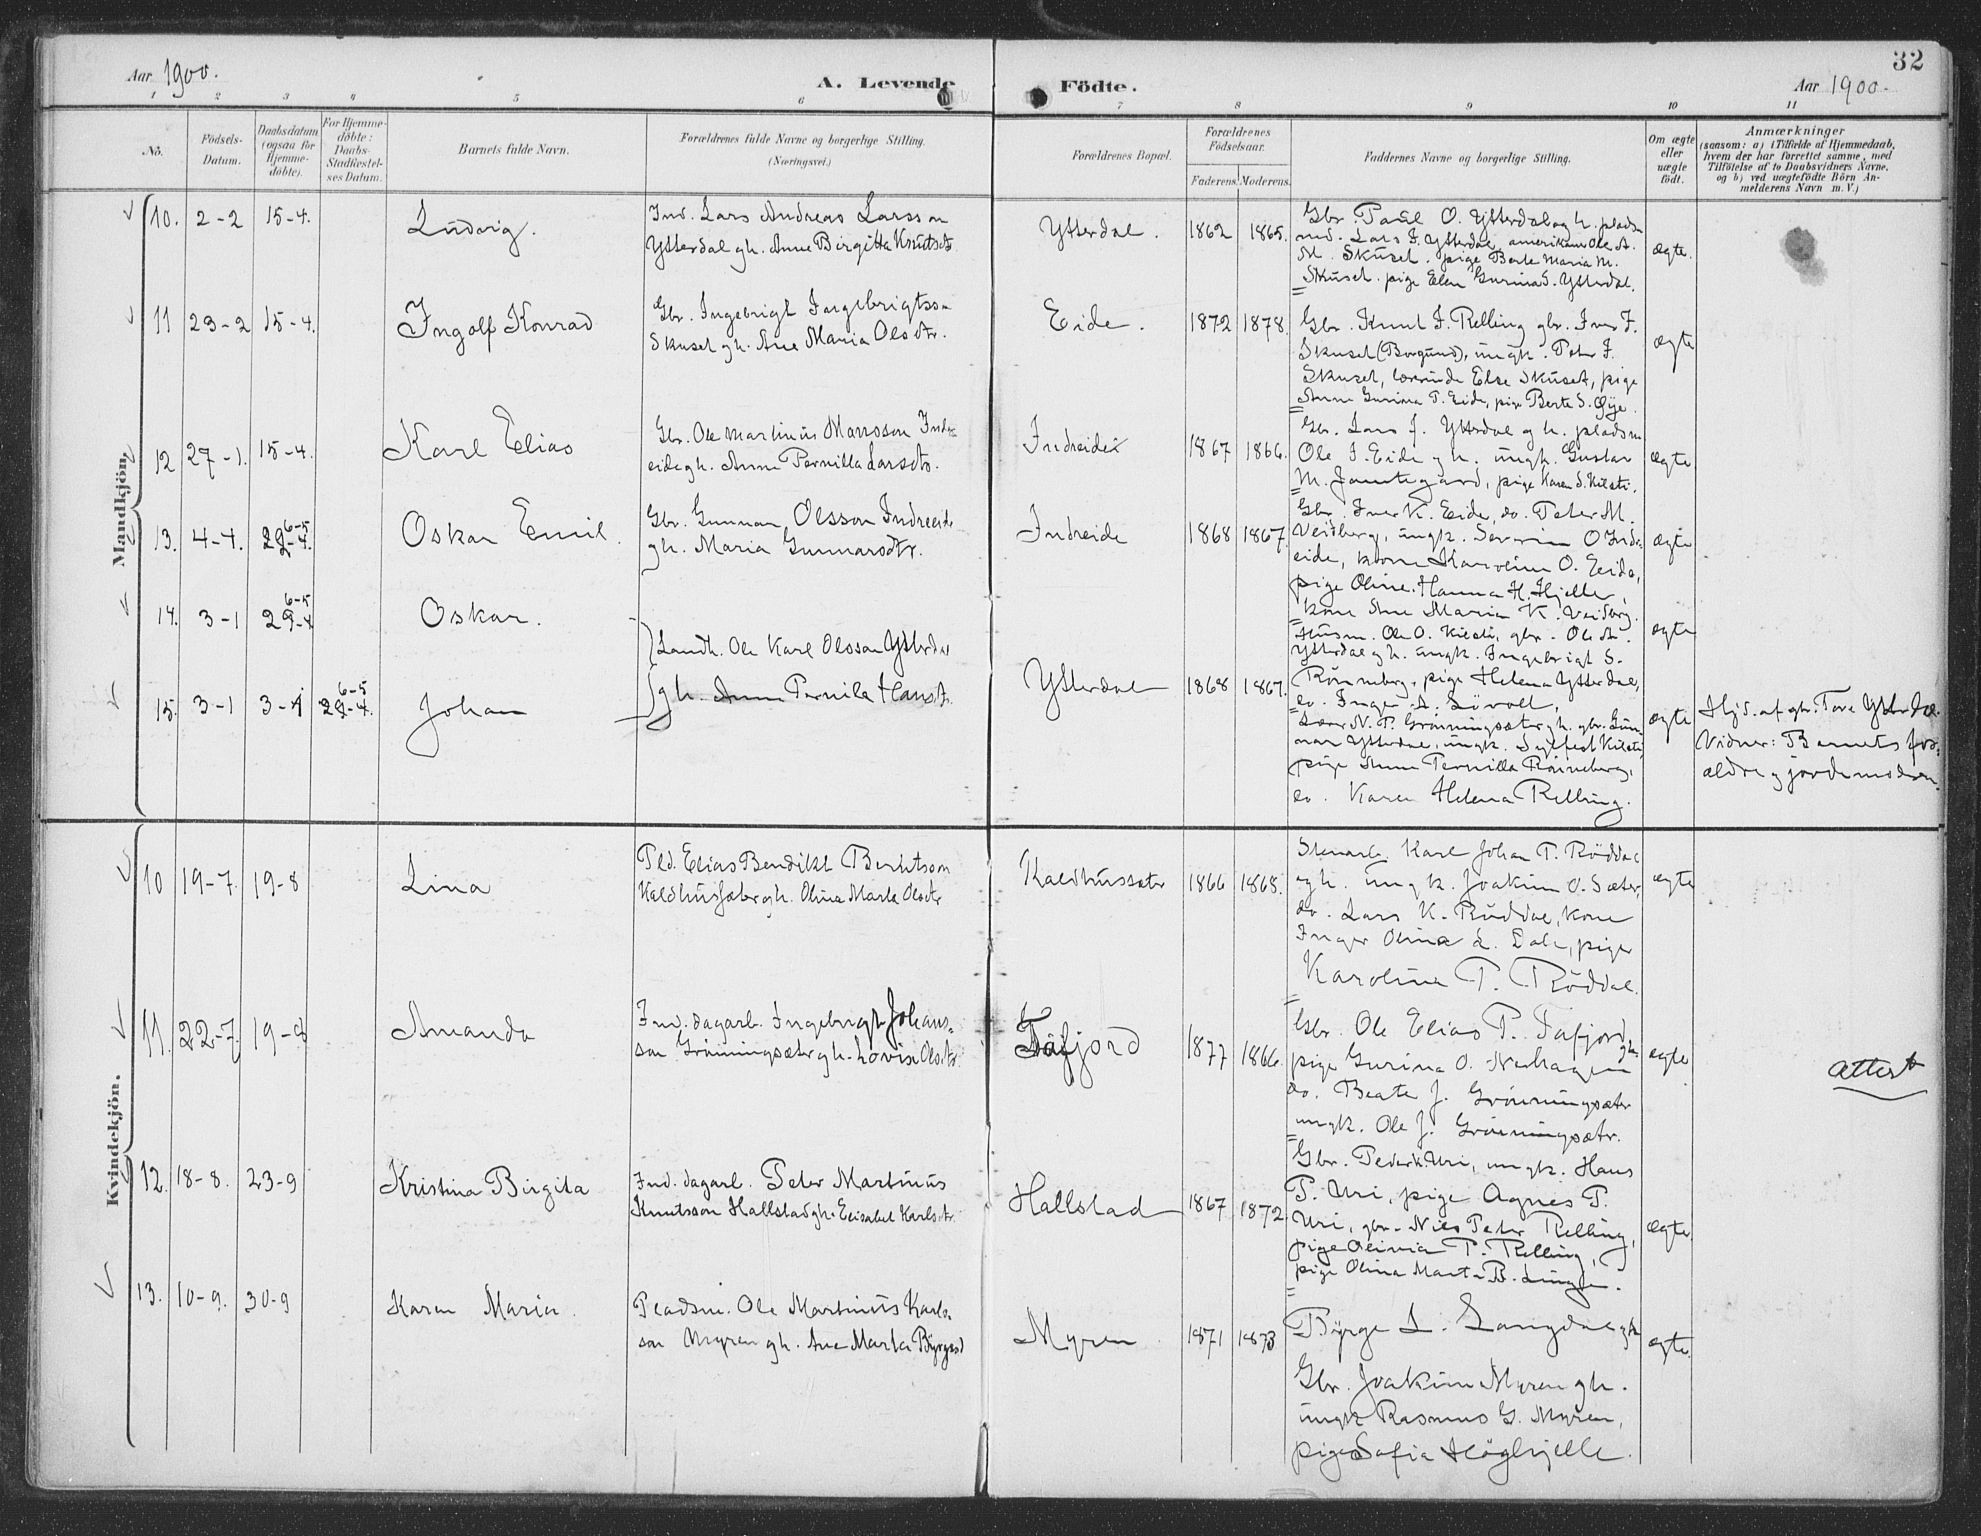 32
Aar 1900.
A. Levende Fødte.
Aar 1900.
1 2 3 4 5 6 7 8 9 10 11
No.
Fødsels-Datum.
Daabsdatum (ogsaa for Hjemme-døbte).
For Hjemme-døbte: Daabs-Stadfæstel-ses Datum.
Barnets fulde Navn.
Forældrenes fulde Navne og borgerlige Stilling. (Næringsvei.)
Forældrenes Bopæl.
Forældrenes Fødselsaar.
Faderens. Moderens.
Faddernes Navne og borgerlige Stilling.
Om ægte eller uægte født.
Anmærkninger
(saasom: a) i Tilfælde af Hjemmedaab,
hvem der har forrettet samme, med
Tilføielse af to Daabsvidners Navne.
og b) ved uægtefødte Børn An-
melderens Navn m. V.)
Mandkjøn.
10. 2-2 15-4. Ludvig.
Ind. Lars Andreas Larsson
Ytterdal gh. Anne Birgitta Knutsdtr.
Ytterdal. 1862 1865.
Gbr. Paul O. Ytterdal og h. pladsm
Lars I. Ytterdal, amerikaner Ole A.
M. Skuset. pige Berte Maria M.
Skuset. pige Elen Gurina S. Ytterdal.
ægte.
11 23-2 15-4. Ingolf Konrad
Gbr. Ingebrigt Ingebrigtss-
Skuset gh. Ane Maria Olsdtr.
Eide. 1872 1878.
Gbr. Knut I. Relling gbr. Iver I.
Skuset (Borgund), ungk. Peter I.
Skuset, lærerinde Else Skuset, pige
Anne Gurina P. Eide, pige Berte S. Øye.
ægte
12 27-1. 15-4. Karl Elias
Gbr. Ole Martinus Monsson Indre-
eide gh. Anne Pernilla Larsdtr.
Indreide 1867 1866.
Gbr. Lars J. Ytterdal og h. pladsm
Ole I. Eide gh. ungk. Gustav
M. Jamtegard, pige Karen S. Kilsti.
ægte
13. 4-4. 29-4. 6-5 Oskar Emil.
Gbr. Gunnar Olsson Indreeide
gh. Maria Gunnarsdtr.
Indreide 1868 1867.
Gbr. Iver K. Eide, do. Peter M.
Veidberg, ungk. Severin O Indre-
eide, kone Karoline O. Eide,
pige Oline Hanna H. Hjelle,
kone Ane Maria K. Veidberg.
ægte
14. 3-1 29-4 6-5 Oskar.
Landh. Ole Karl Olsson Ytterdal
Husm. Ole O. Kilsti, gbr. Ole A.
Ytterdal gh. ungk. Ingebrigt S.
Rønneberg, pige Helena Ytterdal,
do. Inger A. Søvoll.
ægte
15. 3-1 3-1 29-4. 6-5 Johan
gh. Anne Pernila Hansdtr.
Ytterdal 1868 1867.
Lærer N. P. Grønningsæter gh. gbr. Gun-
nar Ytterdal, ungk. Sylfest Kilsti,
pige Anne Pernilla Rønneberg,
do. Karen Helena Relling.
ægte
Hjd. af gbr. Tore Ytterdal.
Vidner: Barnets for-
ældre og jordemoderen.
Kvindekjøn.
10 19-7. 19-8 Lina
Pld. Elias Bendikt Berntsson
Kaldhussæter gh. Olina Marta Olsdtr
Kaldhussæter 1866 1868.
Stenarb. Karl Johan P. Røddal
gh. ungk. Joakim O. Sæter,
do. Lars K. Røddal, kone
Inger Olina L. Dale, pige
Karolina P. Røddal.
ægte
11. 22-7. 19-8 Amanda
Ind. dagarb. Ingebrigt Johans-
son Grønningsæter gh. Lovise Olsdtr.
Tafjord 1877 1866.
Gbr. Ole Elias P. Tafjord gh.
pige Gurina O. Nerhagen
do. Beate J. Grønningsæter
ungk. Ole J. Grønningsætr.
ægte
Attest
12. 18-8. 23-9 Kristina Birgita
Ind. dagarb. Peter Martinus
Knutsson Hallstad gh. Elisabet Karlsdtr
Hallstad 1867 1872.
Gbr. Peder K. Uri, ungk. Hans
P. Uri, pige Agnes P.
Uri, gbr. Nils Peter Relling,
pige Olivia P. Relling,
pige Olina Marta B. Linge.
ægte
13. 10-9. 30-9 Karen Maria.
Pladsm. Ole Martinus Karls-
son Myren gh. Ane Marta Byrgesd
Myren 1871 1873
Byrge L. Langdal gh
Gbr. Joakim Myren gh.
ungk Rasmus G. Myren,
pige Sofia Høghjelle.
ægte.